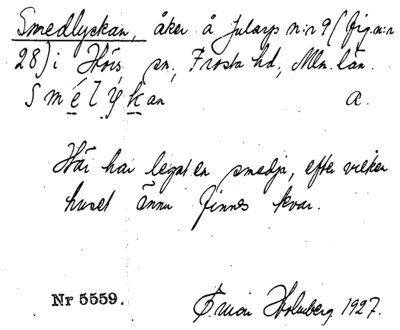 Smedlyckan, åker å Jularp n:r 9 (fig. n:r
28) i Hörs sn, Frosta hd, Mlm. län.
S m é l ý k an a.
Här har legat en smedja, efter vilken
huset ännu finnes kvar.
Nr 5559. Holmberg 1927.